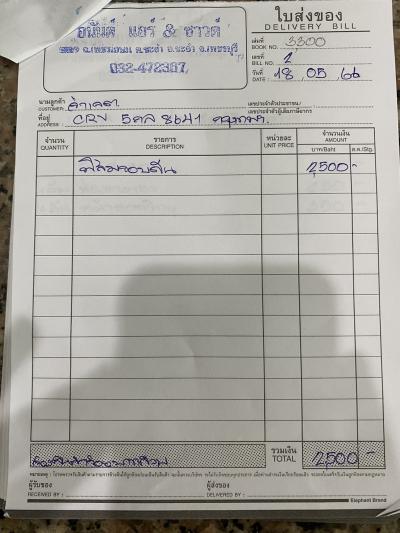 อนันต์ แอร์ & ซาวด์
ถ.เพชรเกษม ต.ชะอำ อ.ชะอำ จ.เพชรบุรี
032-472387,
ใบส่งของ
DELIVERY BILL
เล่มที่ 3300
BOOK NO.
เลขที่ 1
BILL NO.
วันที่ 18 05 66
DATE
นามลูกค้า
CUSTOMER
เลขประจำตัวประชาชน/
เลขประจำตัวผู้เสียภาษีอากร
ที่อยู่ CRV 5กล 8641
ADDRESS
จำนวน รายการ หน่วยละ จำนวนเงิน
QUANTITY DESCRIPTION UNIT PRICE AMOUNT
บาท/Baht ส.ต./Stg.
ฟิล์มรอบคัน 2,500-
รวมเงิน 2,500 -
TOTAL
ผู้รับของ ผู้ส่งของ
RECEIVED BY : DELIVERED BY :
Elephant Brand